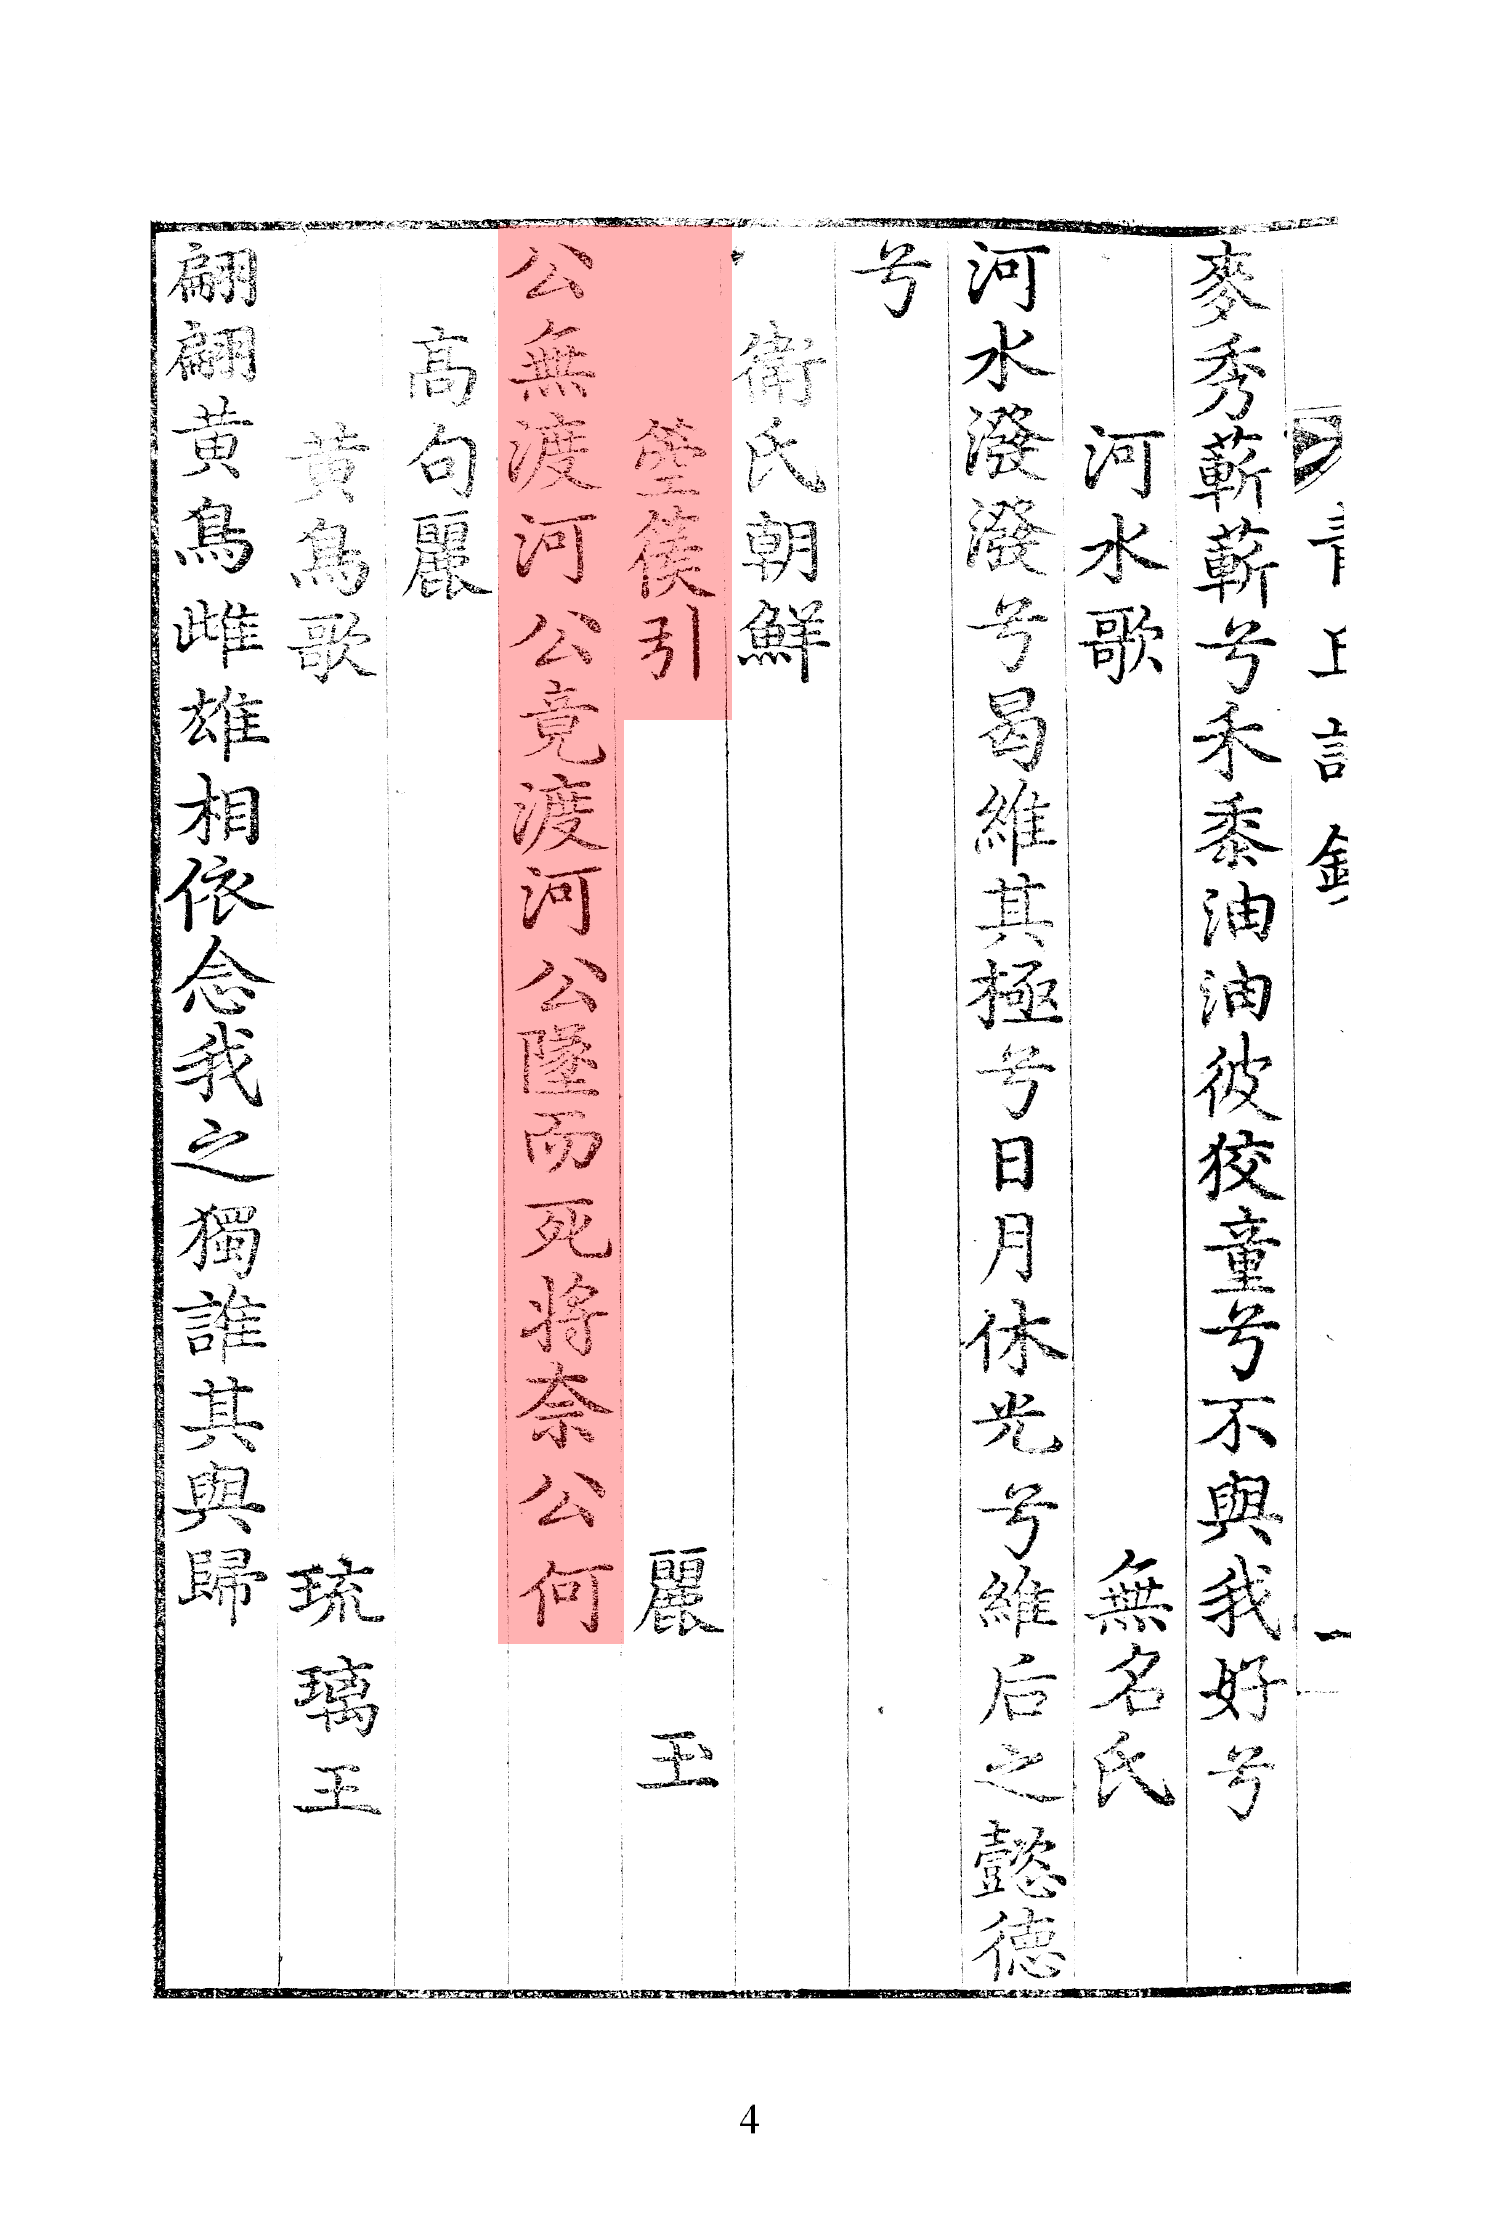 青丘詩鈔 一
麥秀蔪蔪兮禾黍油油彼狡童兮不與我好兮
河水歌 無名氏
河水潑潑兮曷維其極兮日月休光兮維后之懿德
兮
衛氏朝鮮
箜篌引 麗玉
公無渡河公竟渡河公墜而死將奈公何
高句麗
黄鳥歌 琉璃王
翩翩黄鳥雌雄相依念我之獨誰其與歸
4